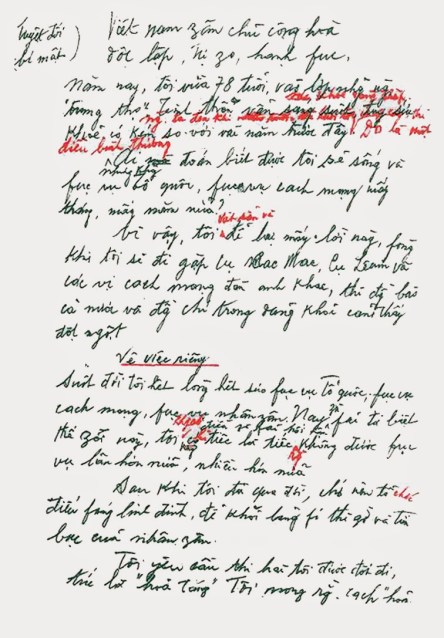 Tuyệt đối
bí mật
Việt nam zân chủ cộng hoà
độc lập, tự zo, hạnh fúc.
Năm nay, tôi vừa 78 tuổi, vào lớp những
"trung thọ". Tinh thần vẫn sáng suốt,
Khoẻ có kém so với vài năm trước đây. Đó là một
điều bình thường
Ai mà đoán biết được tôi sẽ sống và
fục vụ tổ quốc, fục vụ cách mạng mấy
tháng, mấy năm nữa?
Vì vậy, tôi viết sẵn để lại mấy lời này, fòng
khi tôi sẽ đi gặp cụ Các Mác, cụ Lênin và
các vị cách mạng đàn anh khác, thì đồng bào
cả nước và đồng chí trong đảng khỏi cảm thấy
đột ngột.
Về việc riêng
Suốt đời tôi hết lòng hết sức fục vụ tổ quốc, fục vụ
cách mạng, fục vụ nhân zân. Nay zù fải từ biệt
thế zới này, tôi không có điều gì fải hối hận
chỉ tiếc là tiếc rằng không được fục
vụ lâu hơn nữa, nhiều hơn nữa.
Sau khi tôi đã qua đời, chớ nên tổ chức
điếu fúng linh đình, để khỏi lãng fí thì giờ và tiền
bạc của nhân zân.
Tôi yêu cầu thi hài tôi được đốt đi,
tức là "hoả táng". Tôi mong rằng cách "hoả